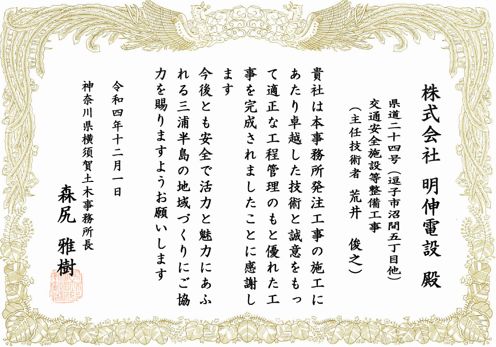 株式会社 明伸電設 殿
県道二十四号（逗子市沼間五丁目他）
交通安全施設等整備工事
（主任技術者 荒井 俊之）
貴社は本事務所発注工事の施工に
あたり卓越した技術と誠意をもっ
て適正な工程管理のもと優れた工
事を完成されましたことに感謝し
ます
今後とも安全で活力と魅力にあふ
れる三浦半島の地域づくりにご協
力を賜りますようお願いします
令和四年十二月一日
神奈川県横須賀土木事務所長
森尻 雅樹